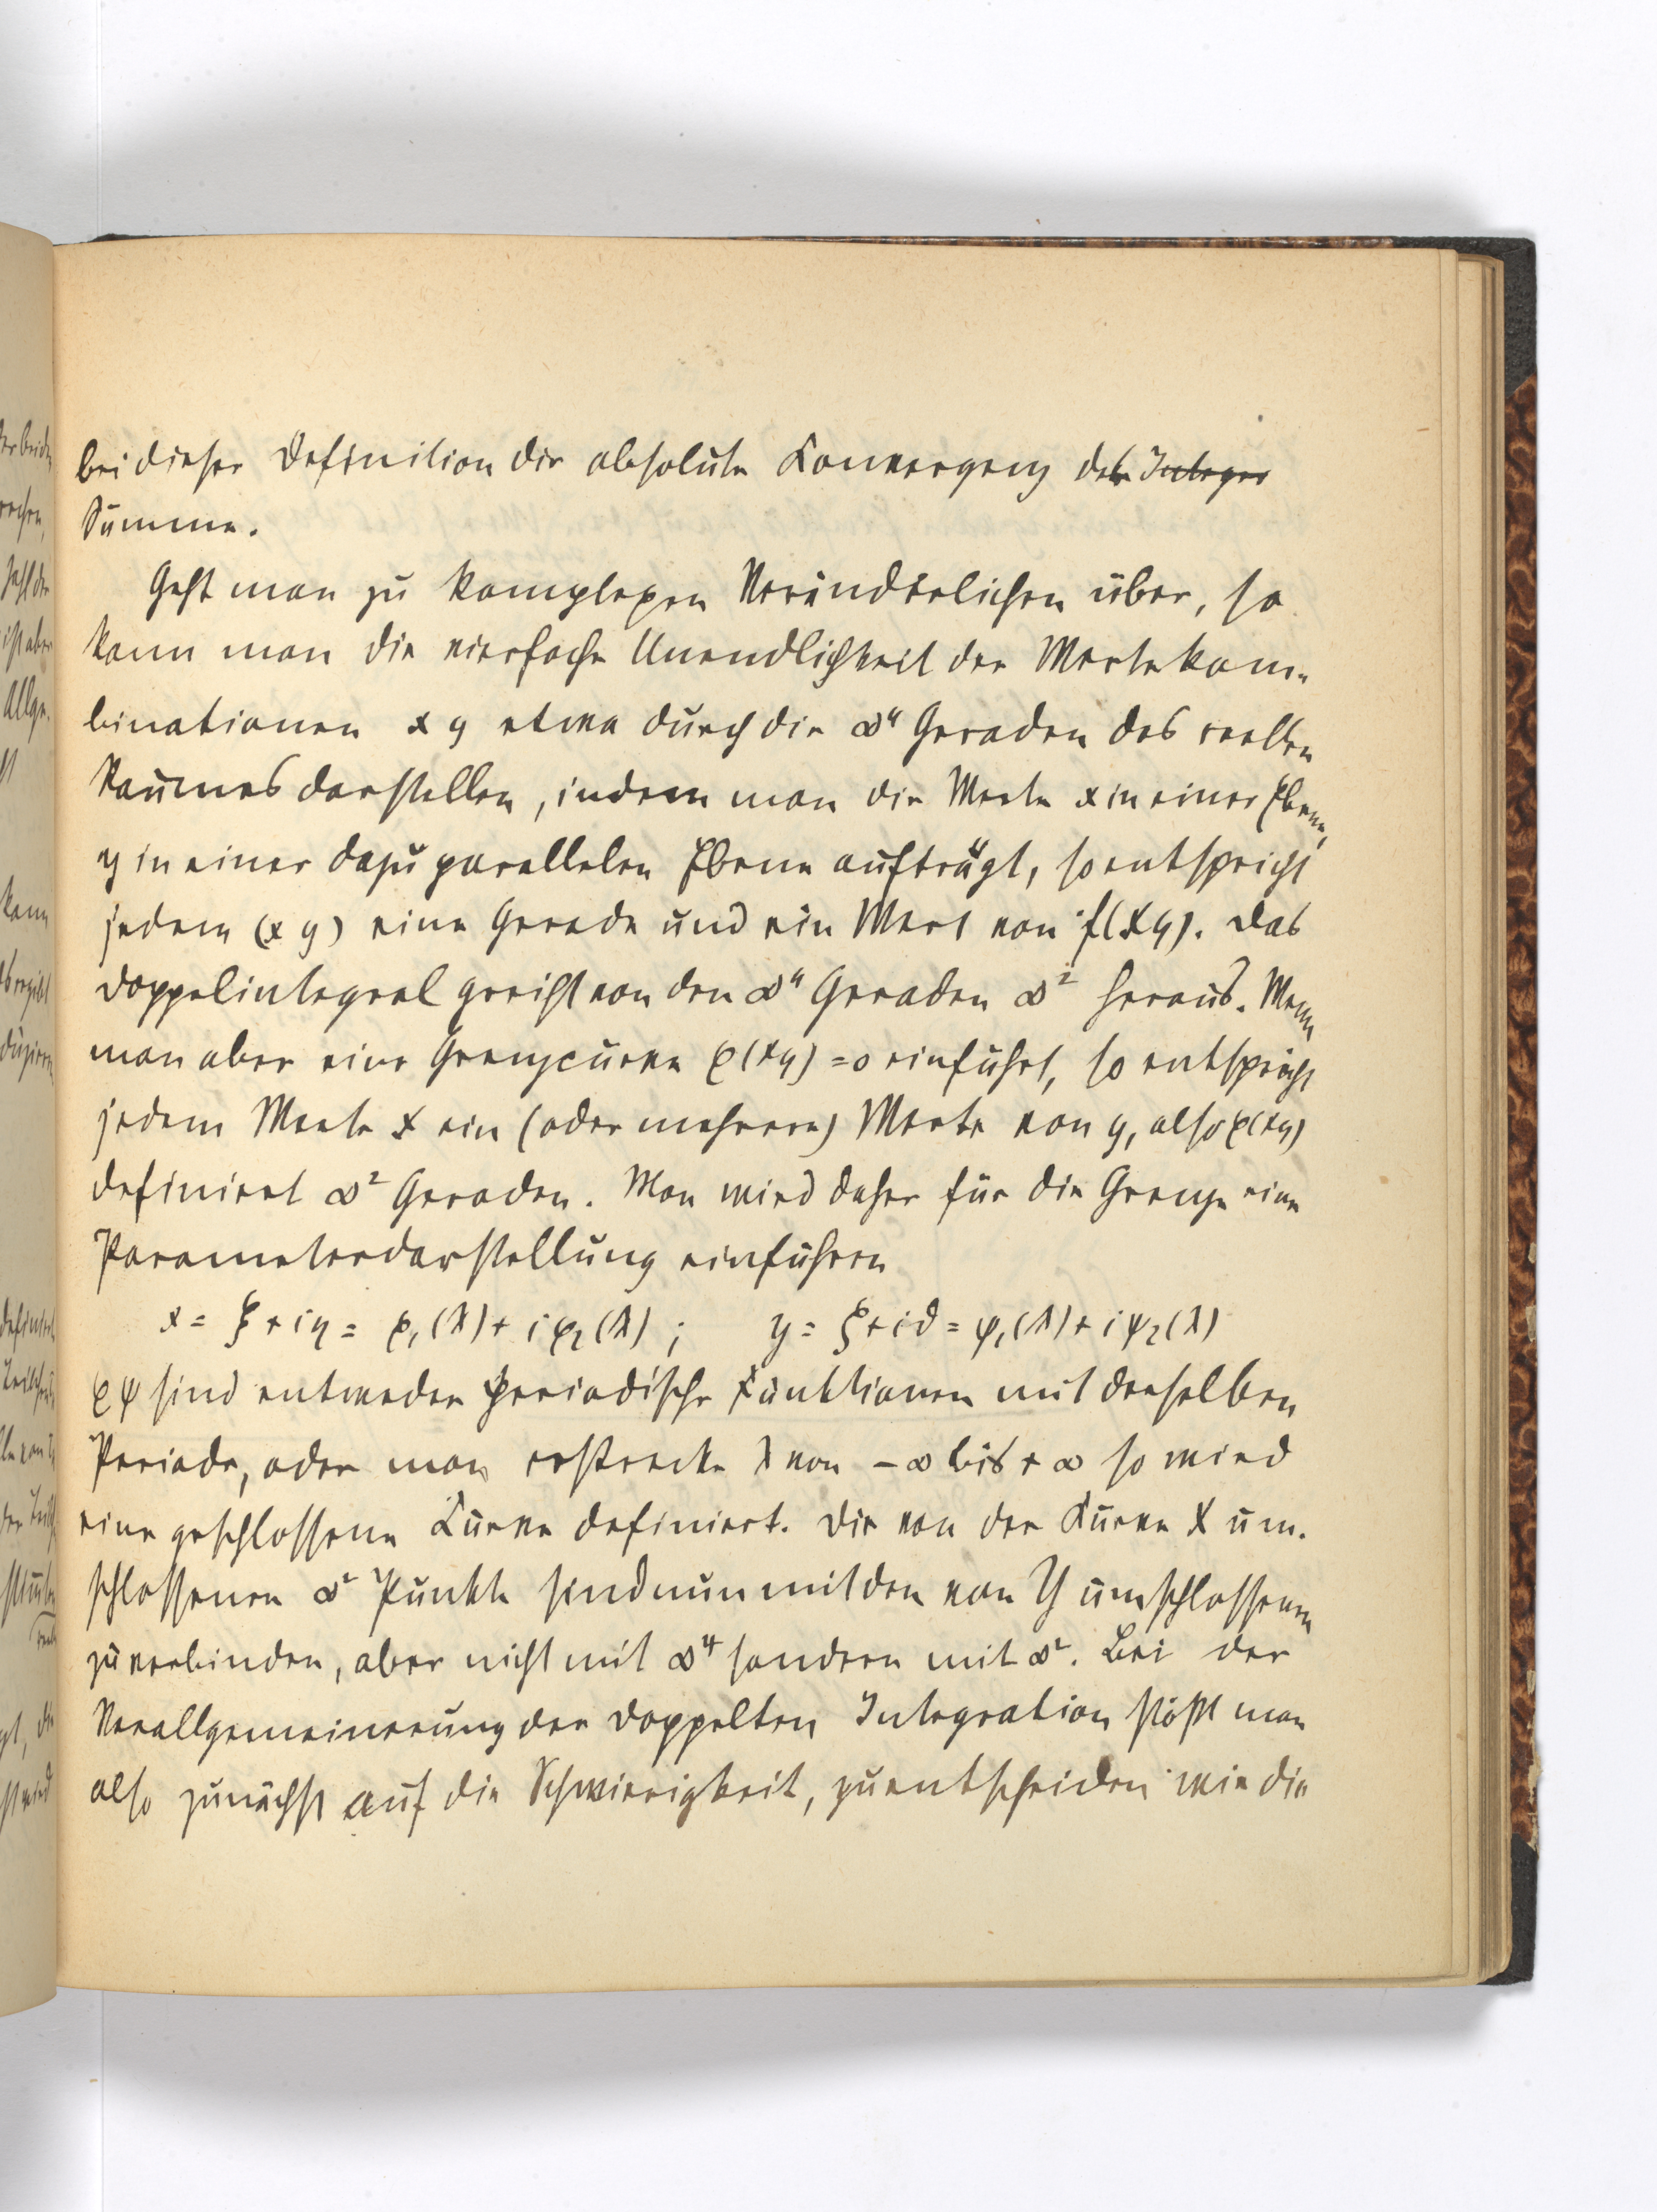 bei dieser Definition die absolute Konvergenz der Integer
Summe.
Geht man zu komplexen Veränderlichen über, so
kann man die vierfache Unendlichkeit der Wertekom-
binationen x y etwa durch die ∞⁴ Geraden des reellen
Raumes darstellen, indem man die Werte x in einer Ebene,
y in einer dazu parallelen Ebene aufträgt, so entspricht
jedem (x y) eine Gerade und ein Wert von f(xy). Das
Doppelintegral greift von den ∞⁴ Geraden ∞² heraus. Wenn
man aber eine Grenzcurve φ(xy) = 0 einführt, so entspricht
jedem Werte x ein (oder mehrere) Werte von y, also φ(xy)
definiert ∞² Geraden. Man wird daher für die Grenze eine
Parameterdarstellung einführen
x = ξ + iη = φ₁(λ) + iφ₂(λ) ; y = ζ + iϑ = ψ₁(λ) + iψ₂(λ)
φ ψ sind entweder periodische Funktionen mit derselben
Periode, oder man erstrecke λ von - ∞ bis + ∞ so wird
eine geschlossene Kurve definiert. Die von der Kurve X um-
schlossenen ∞² Punkte sind nun mit den von Y umschlossenen
zu verbinden, aber nicht mit ∞⁴ sondern mit ∞². Bei der
Verallgemeinerung der doppelten Integration stößt man
also zunächst auf die Schwierigkeit, zu entscheiden wie die